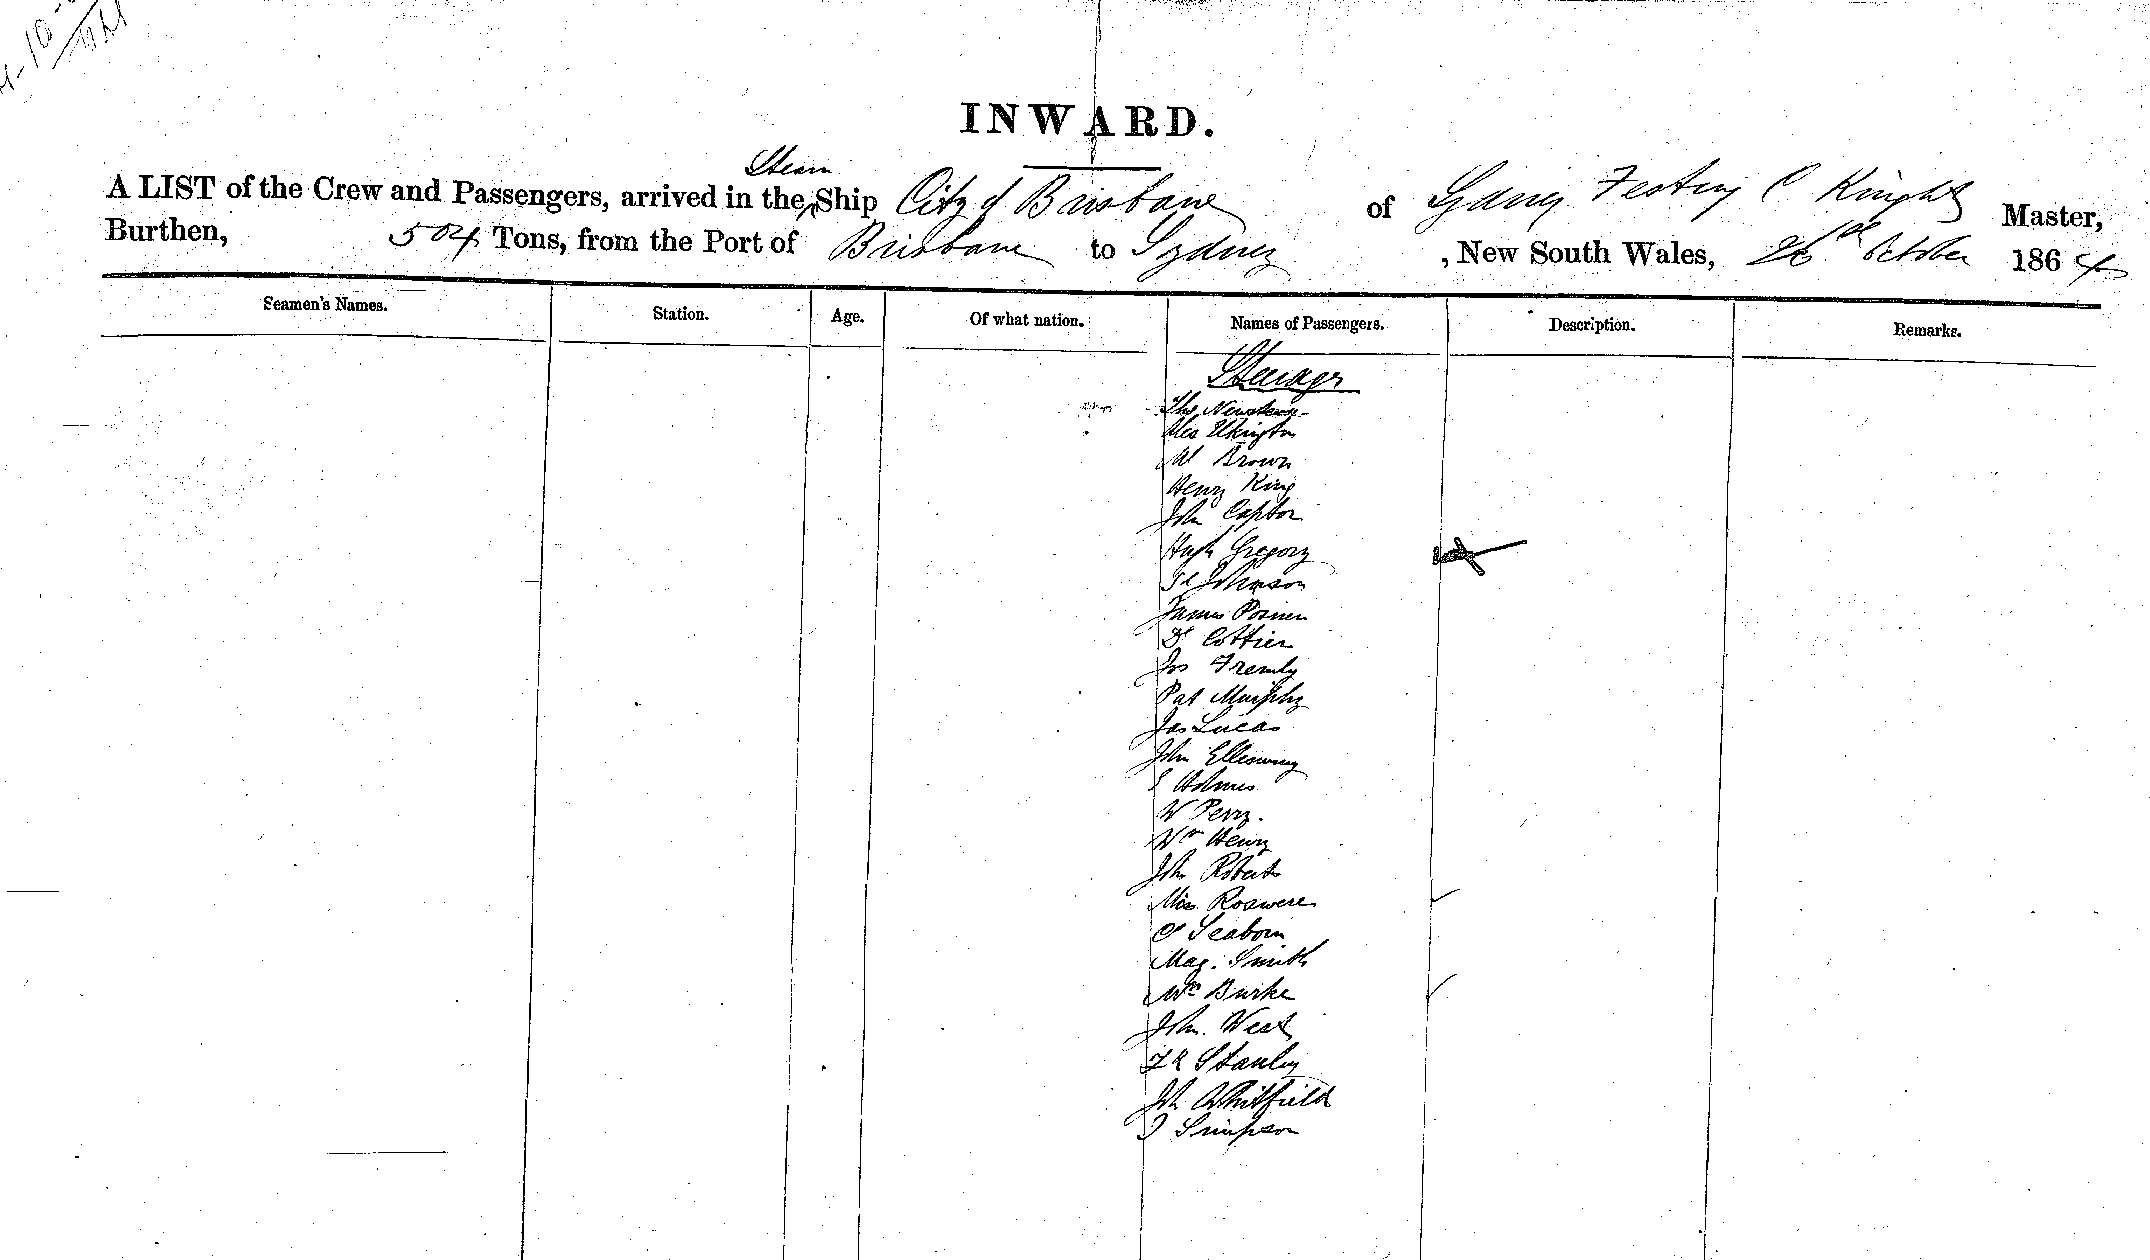 INWARD.
A LIST of the Crew and Passengers, arrived in the Steam Ship City of Brisbane of Sydney C Knight Master,
Burthen, 504 Tons, from the Port of Brisbane to Sydney , New South Wales, 26 October 1864
Seamen's Names. Station. Age. Of what nation. Names of Passengers. Description. Remarks.
Steerage
Thos
Alex Elkington
M Brown
Henry King
John
Hugh Gregory
Johnson
James
Cottier
Jos
Pat Murphy
Jas Lucas
John
E Holmes
W Perry.
Wm Henry
John Roberts
Miss Roswere
C Seaborn
Mag. Smith
Wm Burke
John. West
Stanley
Jn Whitfield
J Simpson